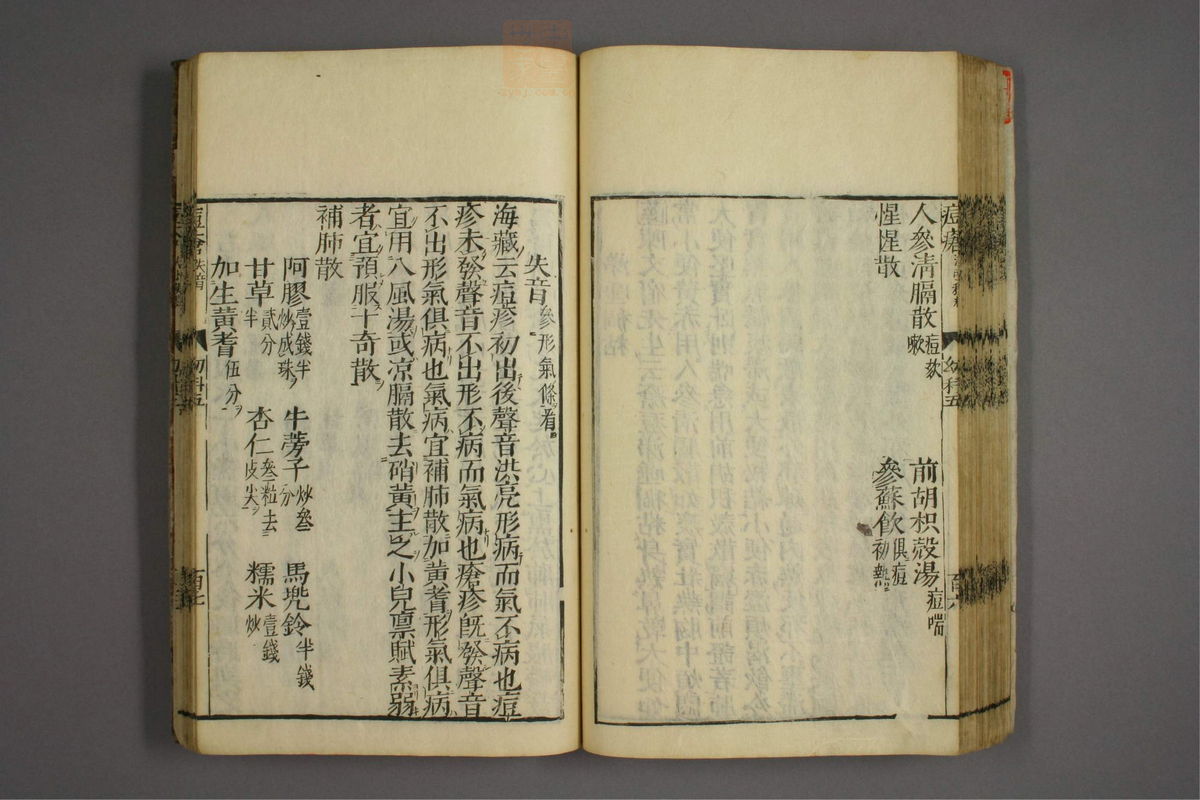 痘瘡
人參清膈散 痘欬嗽 前胡枳殼湯 痘喘
惺惺散 參蘇飲 俱痘初熱
幼科五
百六
失音 參形氣條看
海藏云痘疹初出後聲音洪亮形病而氣不病也痘
疹未發聲音不出形不病而氣病也瘡疹旣發聲音
不出形氣俱病也氣病宜補肺散加黃耆形氣俱病
宜用八風湯或凉膈散去硝黃主之小兒稟賦素弱
者宜預服十奇散
補肺散
阿膠 壹錢半炒成珠 牛蒡子 炒叄分 馬兠鈴 半錢
甘草 貳分半 杏仁 叄粒去皮尖 糯米 壹錢炒
加生黃耆 伍分
痘瘡 失音
幼科五
百七